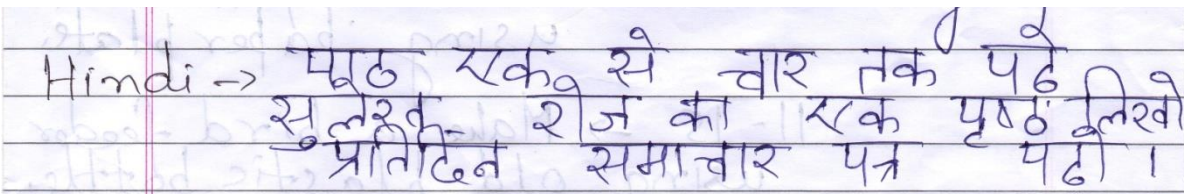 Hindi -> पाठ एक से चार तक पढे
सुलेख रोज का एक पृष्ठ लिखो
प्रतिदिन समाचार पत्र पढो ।